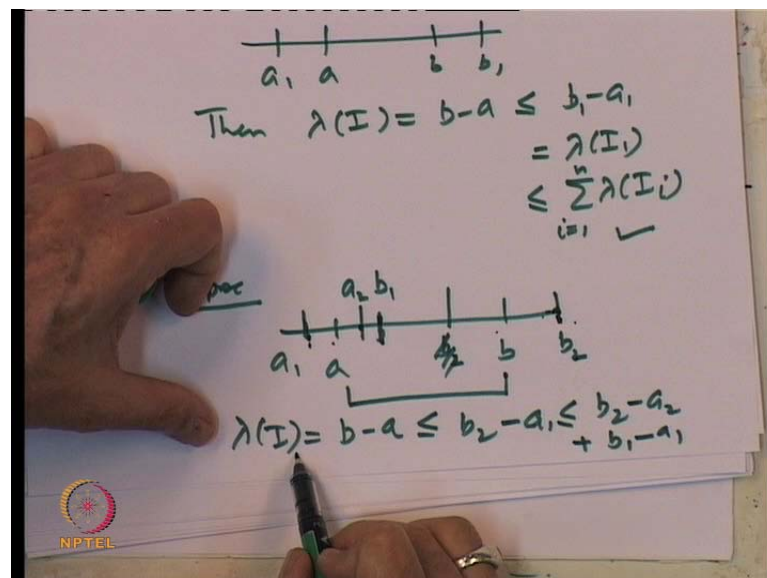 a₁ a b b₁
Then λ(I) = b-a ≤ b₁-a₁
= λ(I₁)
≤ ∑ⁿᵢ₌₁ λ(Iᵢ) ✓
a₂ b₁
a₁ a b b₂
λ(I) = b-a ≤ b₂-a₁ ≤ b₂-a₂
+ b₁-a₁
NPTEL